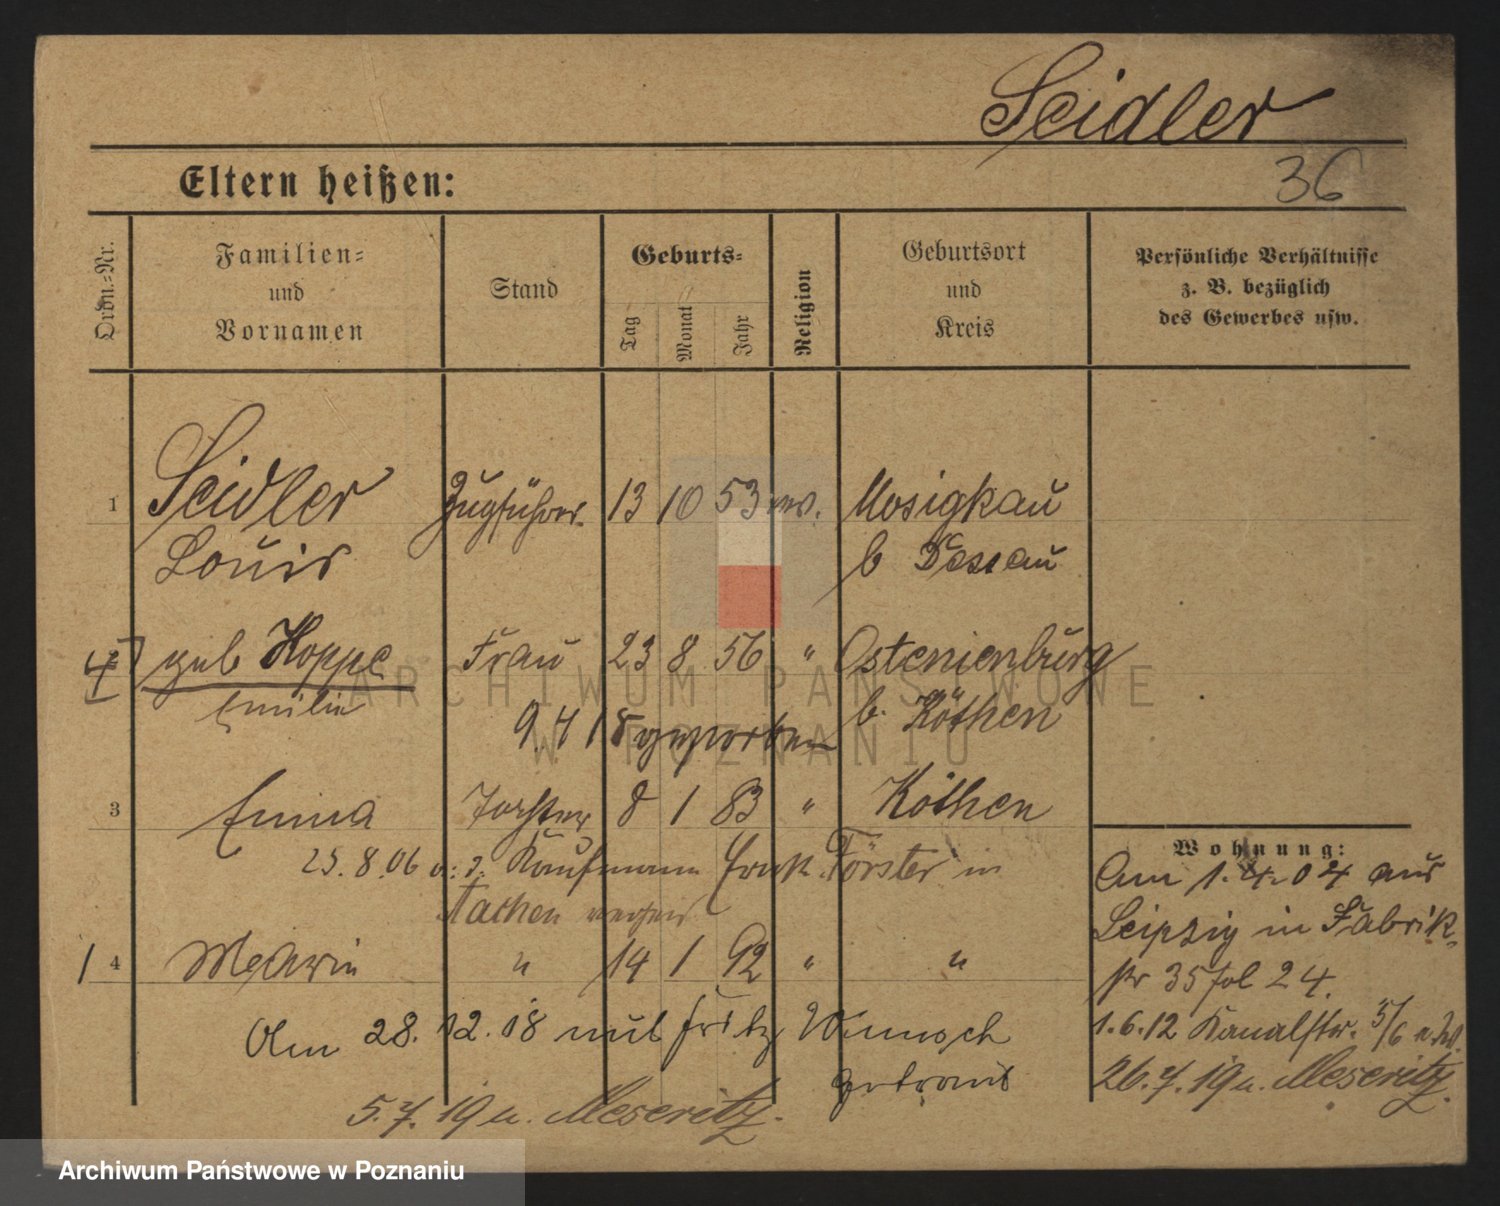 Seidler
36
Eltern heißen:
Ordn.-Nr.
Familien-
und
Vornamen
Stand
Geburts-
Tag
Monat
Jahr
Religion
Geburtsort
und
Kreis
Persönliche Verhältnisse
z. B. bezüglich
des Gewerbes usw.
1 Seidler Zugführer 13 10 53 ev. Mosigkau
Louis b Dessau
geb Hoppe Frau 23 8 56 " Ostenienburg
Emilie b. Köthen
9. 4 18 gestorben
3 Emma Tochter 8 1 83 " Köthen
25.8.06 Kaufmann Förster in
Aachen
1 4 Marie " 14 1 92 " "
Am 28. 12. 08 mit Fritz Wunsch
getraut
5. 7. 19 n. Meseritz.
Wohnung:
Am 1. 4. 04 aus
Leipzig in Fabrik-
str 35 fol 24.
1. 6. 12 Kanalstr. 5/6
26. 7. 19 n. Meseritz.
ARCHIWUM PAŃSTWOWE
W POZNANIU
Archiwum Państwowe w Poznaniu